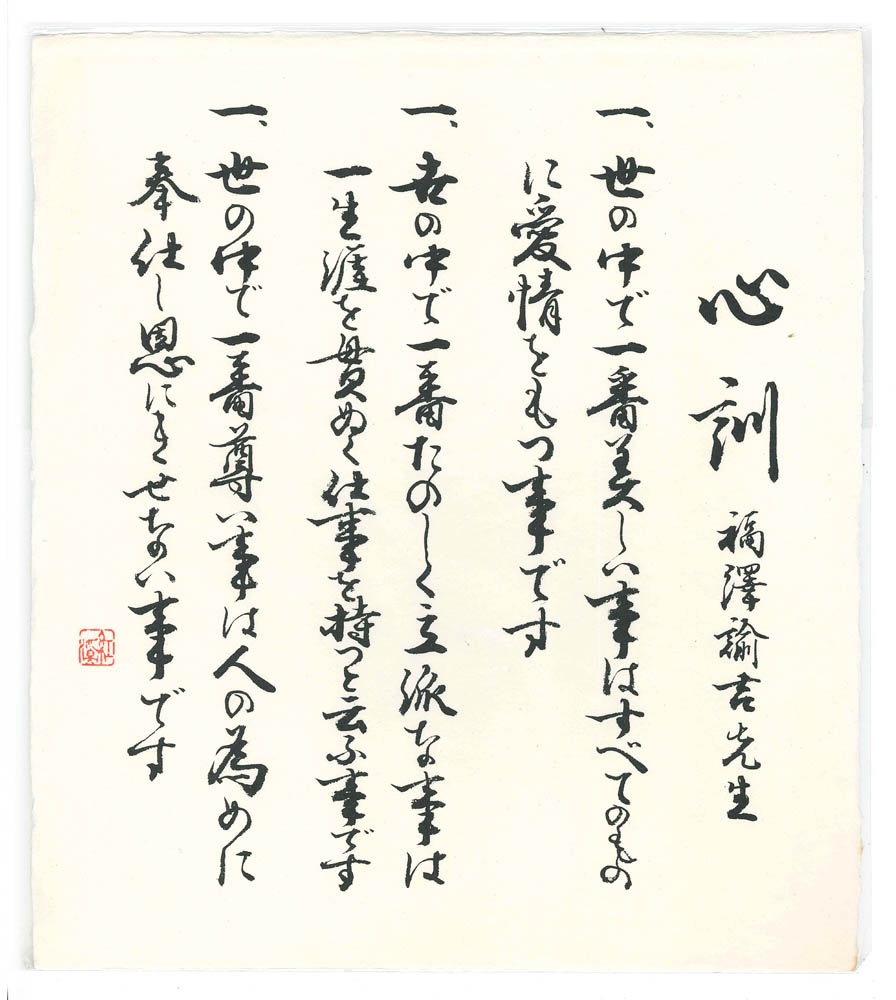 心訓 福澤諭吉先生
一、世の中で一番美しい事はすべてのもの
に愛情をもつ事です
一、世の中で一番たのしく立派な事は
一生涯を貫ぬく仕事を持つと云ふ事です
一、世の中で一番尊い事は人の為めに
奉仕し恩にきせない事です